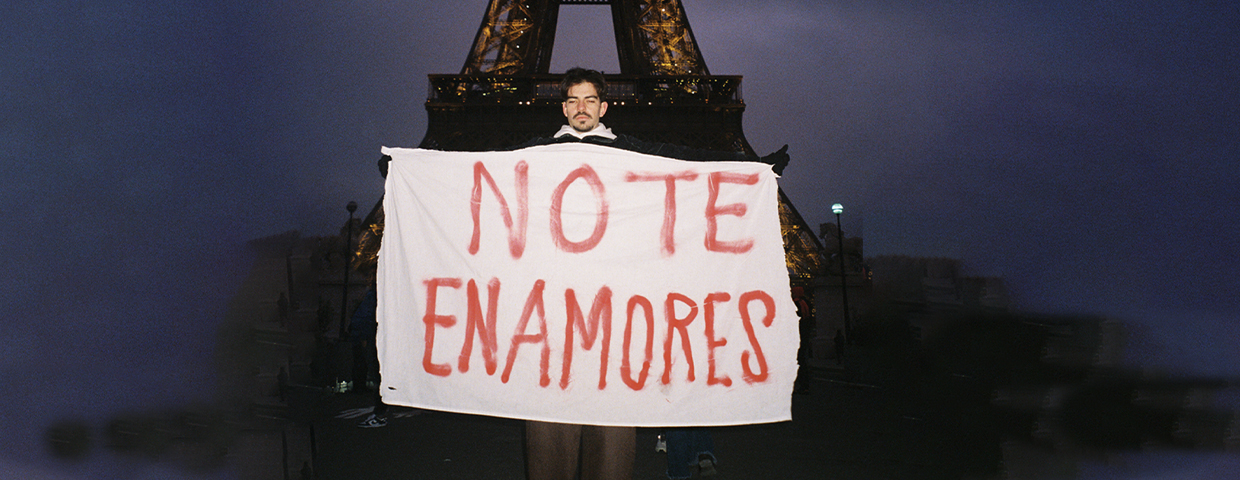 NO TE
ENAMORES